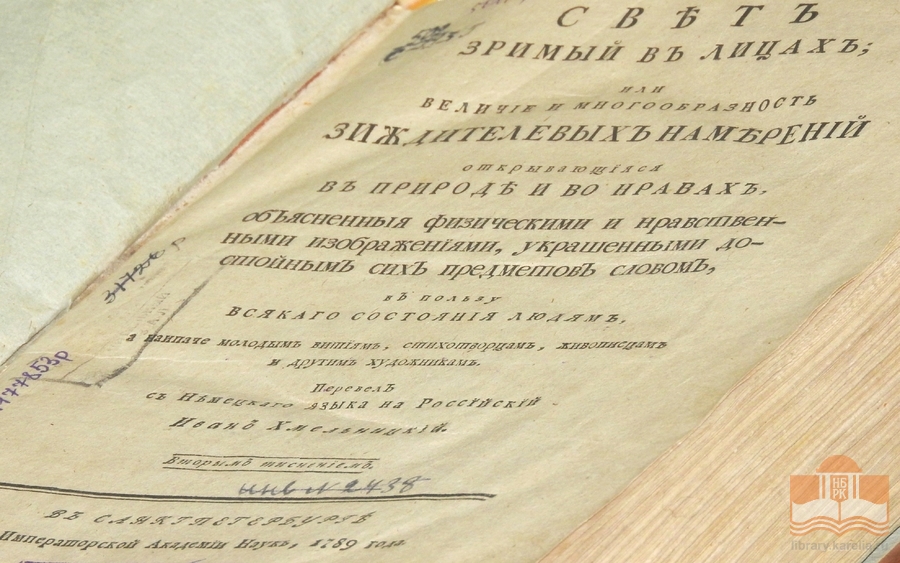 СВѢТЪ
ЗРИМЫЙ ВЪ ЛИЦАХЪ;
ИЛИ
ВЕЛИЧІЕ И МНОГООБРАЗНОСТЬ
ЗИЖДИТЕЛЕВЫХЪ НАМѢРЕНІЙ
открывающіяся
ВЪ ПРИРОДѢ И ВО НРАВАХЪ,
объясненныя физическими и нравствен-
ными изображеніями, украшенными до-
стойнымъ сихъ предметовъ словомъ,
въ пользу
ВСЯКАГО СОСТОЯНІЯ ЛЮДЯМЪ,
а наипаче молодымъ витіямъ, стихотворцамъ, живописцамъ
и другимъ художникамъ.
Перевелъ
съ Нѣмецкаго языка на Россійскій
Иванъ Хмельницкій.
Вторымъ тисненіемъ.
инв № 2438
ВЪ САНКТПЕТЕРБУРГѢ
Императорской Академіи Наукъ, 1789 года
77853р
НБ
РК
library.karelia.ru